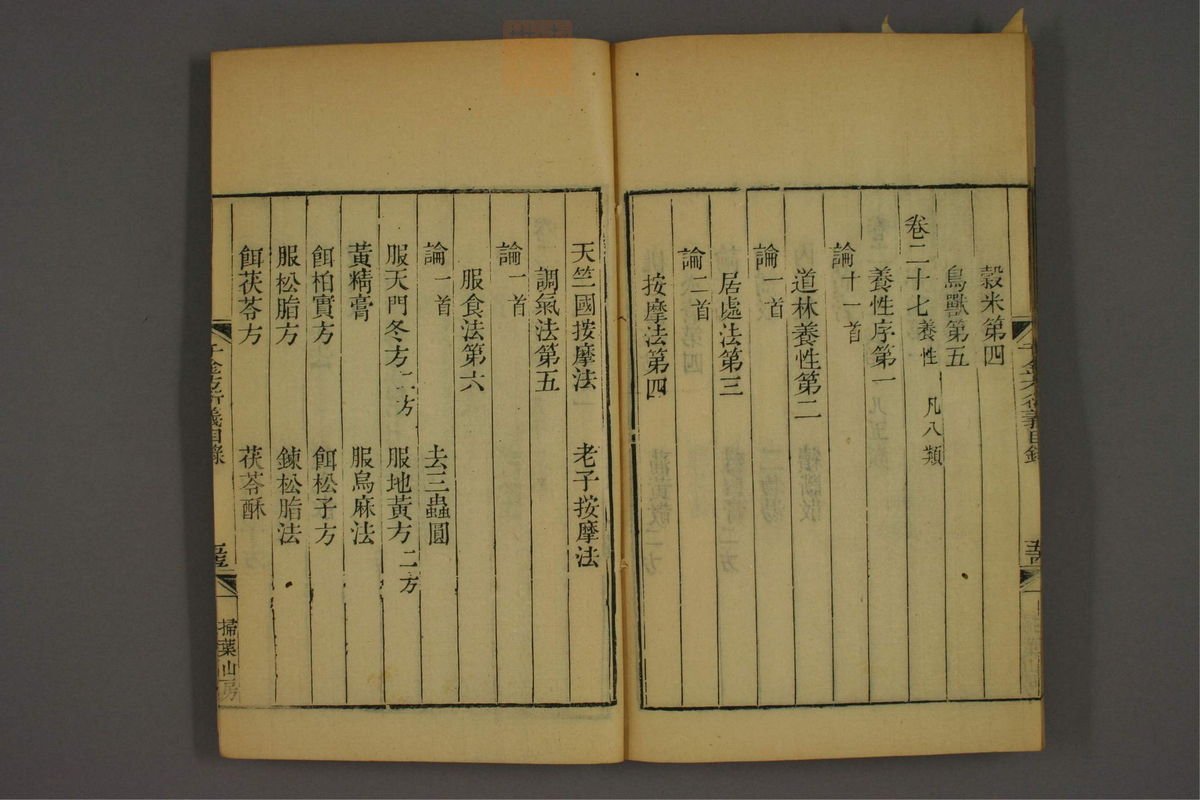 穀米第四
鳥獸第五
卷二十七 養性 凡八類
養性序第一
論十一首
道林養性第二
論一首
居處法第三
論二首
按摩法第四
天竺國按摩法 老子按摩法
調氣法第五
論一首
服食法第六
論一首 去三蟲圓
服天門冬方二方 服地黃方二方
黃精膏 服烏麻法
餌柏實方 餌松子方
服松脂方 鍊松脂法
餌茯苓方 茯苓酥
千金方衍義目錄
掃葉山房